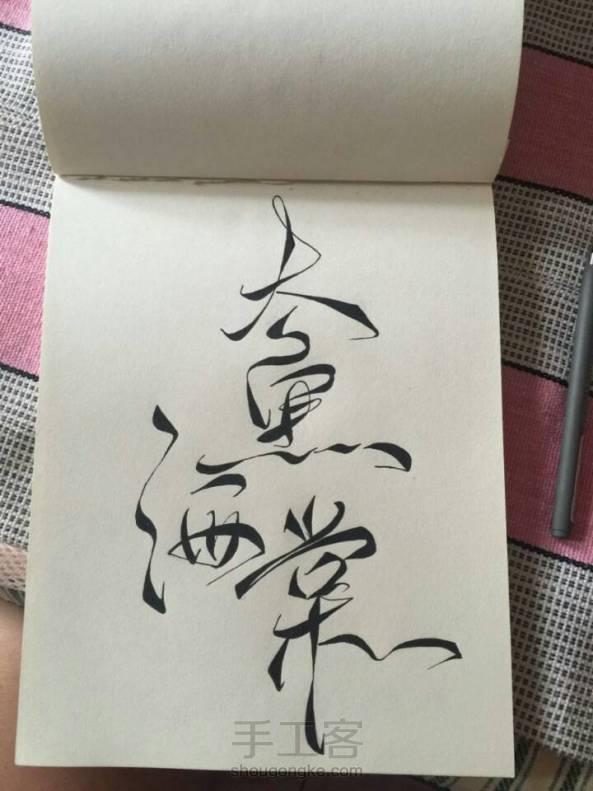 大鱼
海棠
手工客
shougongke.com